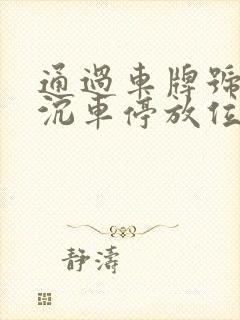 通過車牌號
沉車停放位
静濤